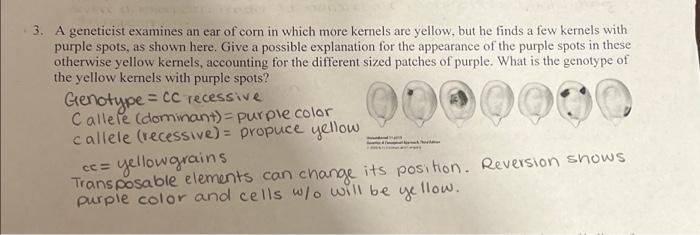 3. A geneticist examines an ear of corn in which more kernels are yellow, but he finds a few kernels with
purple spots, as shown here. Give a possible explanation for the appearance of the purple spots in these
otherwise yellow kernels, accounting for the different sized patches of purple. What is the genotype of
the yellow kernels with purple spots?
Genotype = CC recessive
C allele (dominant) = purple color
c allele (recessive) = propuce yellow
cc = yellow grains
Transposable elements can change its position. Reversion shows
purple color and cells w/o will be yellow.